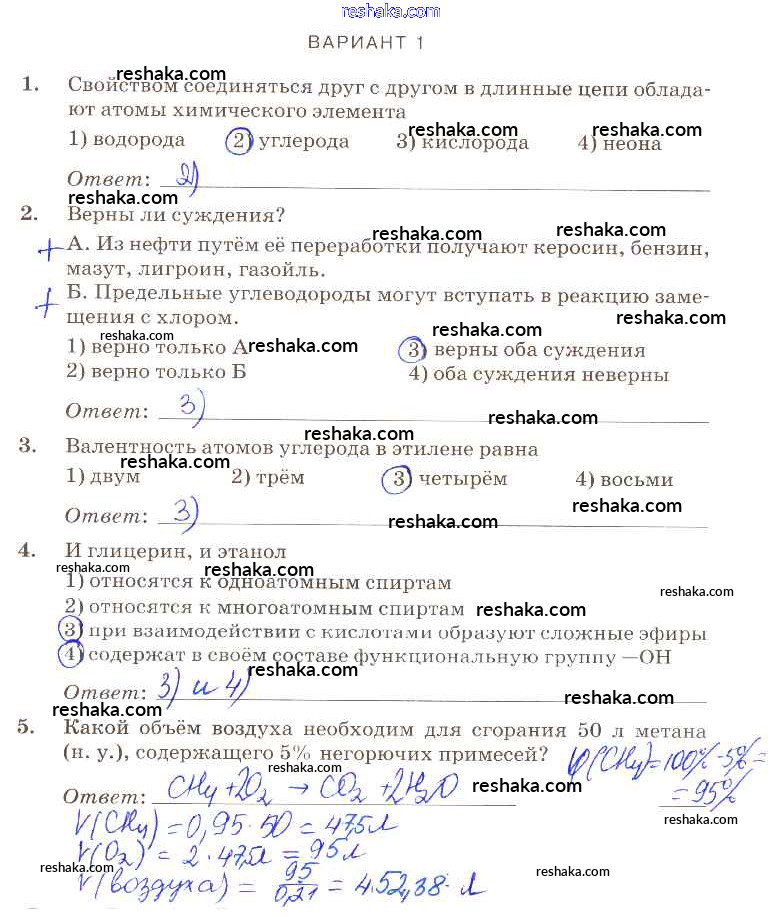 reshaka.com
ВАРИАНТ 1
reshaka.com
1. Свойством соединяться друг с другом в длинные цепи облада-
ют атомы химического элемента
reshaka.com reshaka.com
1) водорода 2) углерода 3) кислорода 4) неона
Ответ: 2)
reshaka.com
reshaka.com
2. Верны ли суждения?
reshaka.com reshaka.com
+ А. Из нефти путём её переработки получают керосин, бензин,
мазут, лигроин, газойль.
+ Б. Предельные углеводороды могут вступать в реакцию заме-
щения с хлором.
reshaka.com
reshaka.com reshaka.com
1) верно только А reshaka.com 3) верны оба суждения
2) верно только Б 4) оба суждения неверны
Ответ: 3)
reshaka.com
reshaka.com
3. Валентность атомов углерода в этилене равна
reshaka.com
1) двум 2) трём 3) четырём 4) восьми
reshaka.com
Ответ: 3)
reshaka.com
4. И глицерин, и этанол
reshaka.com reshaka.com
1) относятся к одноатомным спиртам
reshaka.com
2) относятся к многоатомным спиртам reshaka.com
3) при взаимодействии с кислотами образуют сложные эфиры
4) содержат в своём составе функциональную группу —ОН
reshaka.com
Ответ: 3) и 4)
reshaka.com reshaka.com
5. Какой объём воздуха необходим для сгорания 50 л метана
(н. у.), содержащего 5% негорючих примесей? φ(CH4)=100%-5%=
reshaka.com
Ответ: CH4+2O2 → CO2+2H2O reshaka.com = 95%
V(CH4)=0,95·50=47,5л
V(O2)=2·47,5л=95л
reshaka.com reshaka.com reshaka.com
V(воздуха)= 95/0,21 =452,38 л